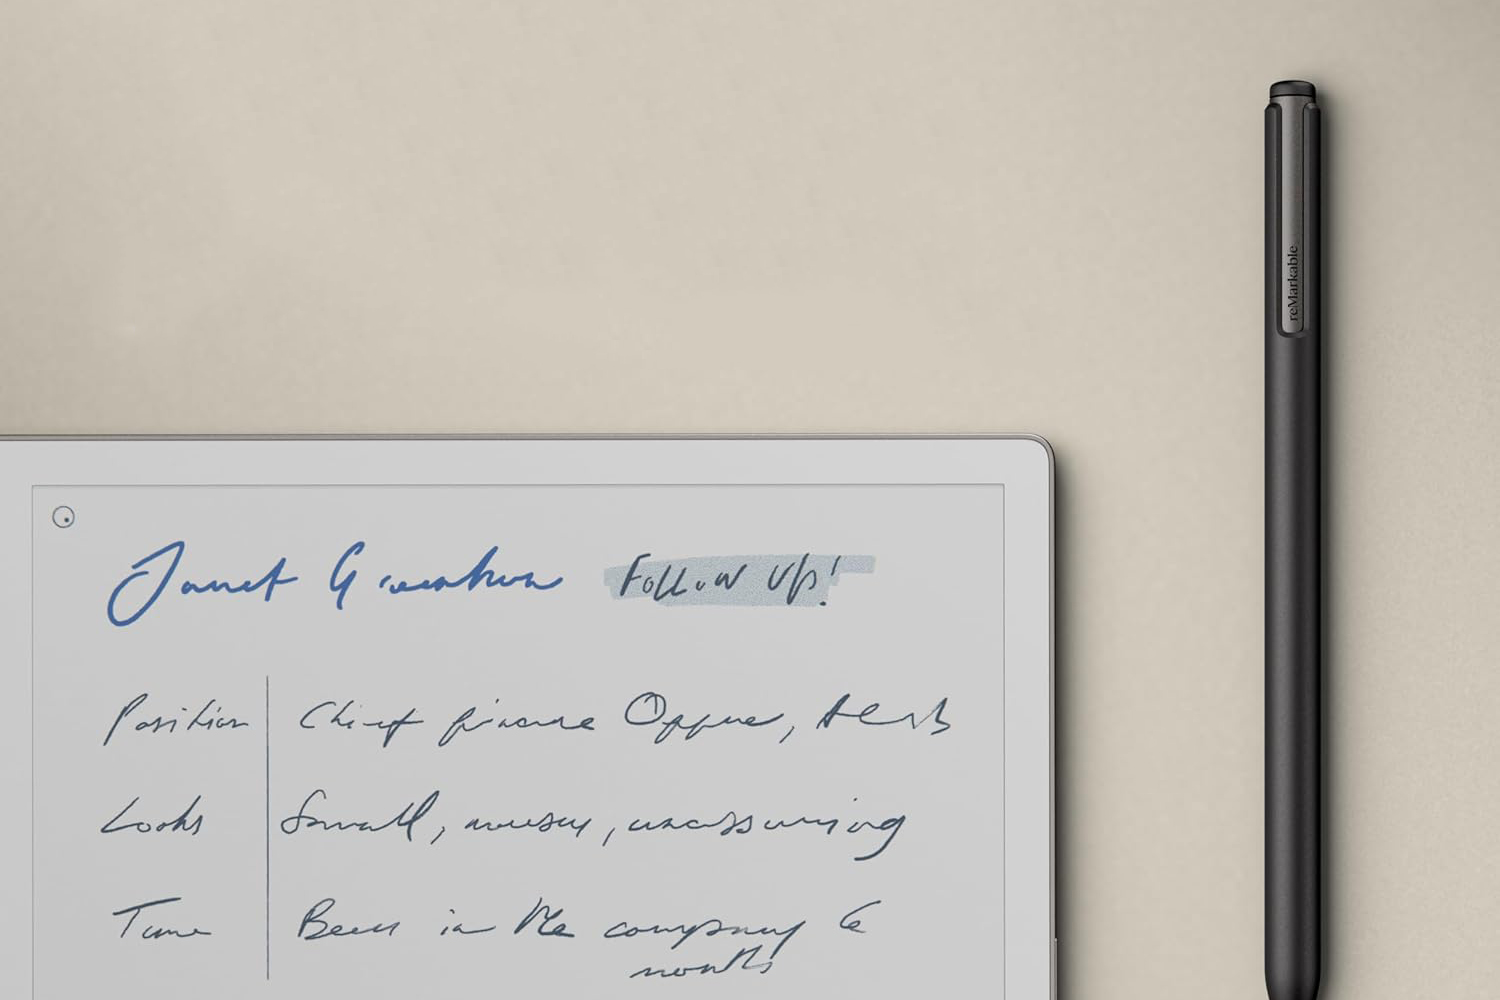 Janet G
Follow up!
Position Chief finance
Looks Small, mousy, unassuming
Time Been in the company 6
months
reMarkable